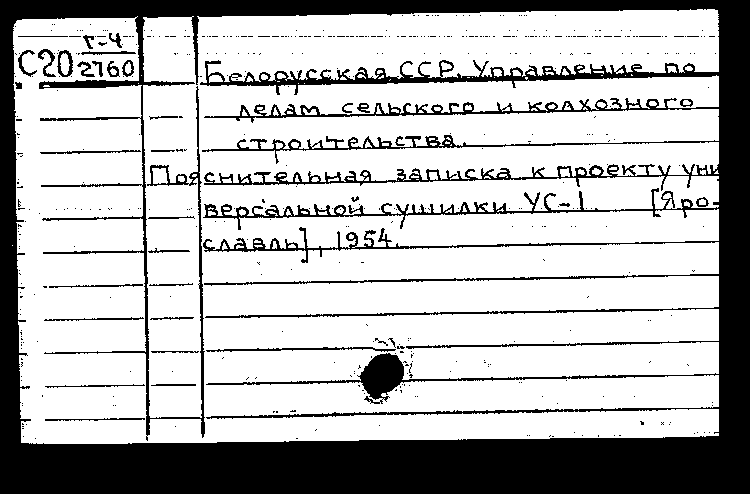 С20 г-4
2760
Белорусская ССР. Управление по
делам сельского и колхозного
строительства.
Пояснительная записка к проекту уни
версальной сушилки УС-1. [Яро-
славль], 1954.